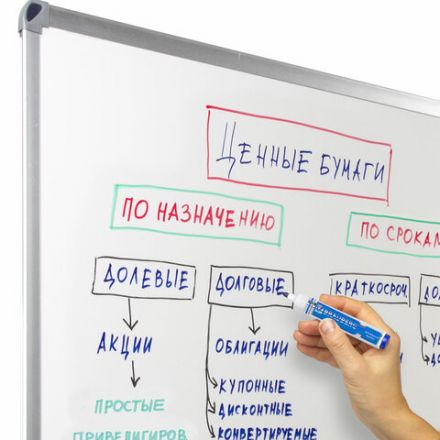 ЦЕННЫЕ БУМАГИ
ПО НАЗНАЧЕНИЮ
ПО СРОКАМ
ДОЛЕВЫЕ
ДОЛГОВЫЕ
КРАТКОСРОЧ
АКЦИИ
ОБЛИГАЦИИ
ПРОСТЫЕ
ПРИВЕЛИГИРОВ
КУПОННЫЕ
ДИСКОНТНЫЕ
КОНВЕРТИРУЕМЫЕ
BRAUBERG